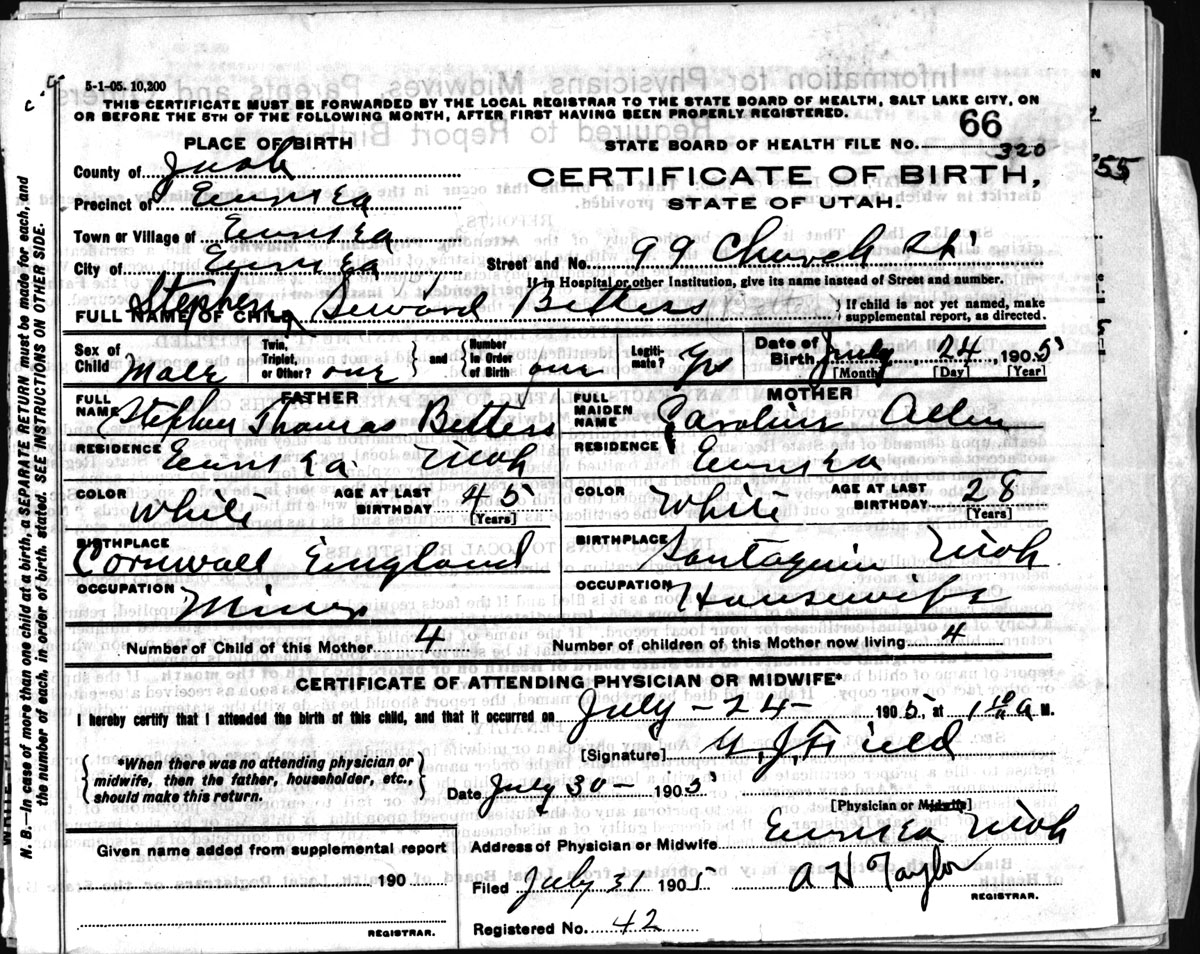 5-1-05. 10,200
THIS CERTIFICATE MUST BE FORWARDED BY THE LOCAL REGISTRAR TO THE STATE BOARD OF HEALTH, SALT LAKE CITY, ON
OR BEFORE THE 5TH OF THE FOLLOWING MONTH, AFTER FIRST HAVING BEEN PROPERLY REGISTERED.
PLACE OF BIRTH
STATE BOARD OF HEALTH FILE No. 66
320
County of Juab
CERTIFICATE OF BIRTH,
STATE OF UTAH.
Precinct of Eureka
Town or Village of Eureka
City of Eureka
Street and No. 99 Church St
If in Hospital or other Institution, give its name instead of Street and number.
FULL NAME OF CHILD Stephen Seward Bettess
If child is not yet named, make
supplemental report, as directed.
Sex of Child Male
Twin, Triplet, or Other? one
and Number in Order of Birth one
Legiti-mate? Yes
Date of Birth July 24 1905
[Month] [Day] [Year]
FATHER
FULL NAME Stephen Thomas Bettess
RESIDENCE Eureka Utah
COLOR White
AGE AT LAST BIRTHDAY 45
[Years]
BIRTHPLACE Cornwall England
OCCUPATION Miner
MOTHER
FULL MAIDEN NAME Caroline Allen
RESIDENCE Eureka
COLOR White
AGE AT LAST BIRTHDAY 28
[Years]
BIRTHPLACE Santaquin Utah
OCCUPATION Housewife
Number of Child of this Mother 4
Number of children of this Mother now living 4
CERTIFICATE OF ATTENDING PHYSICIAN OR MIDWIFE*
I hereby certify that I attended the birth of this child, and that it occurred on July -24- 1905, at 1 A M.
*When there was no attending physician or
midwife, then the father, householder, etc.,
should make this return.
[Signature] Field
Date July 30- 1905
[Physician or Midwife]
Address of Physician or Midwife Eureka Utah
Given name added from supplemental report
190
REGISTRAR.
Filed July 31 1905
A H Taylor
REGISTRAR.
Registered No. 42
N. B.—In case of more than one child at a birth, a SEPARATE RETURN must be made for each, and
the number of each, in order of birth, stated. SEE INSTRUCTIONS ON OTHER SIDE.
'55